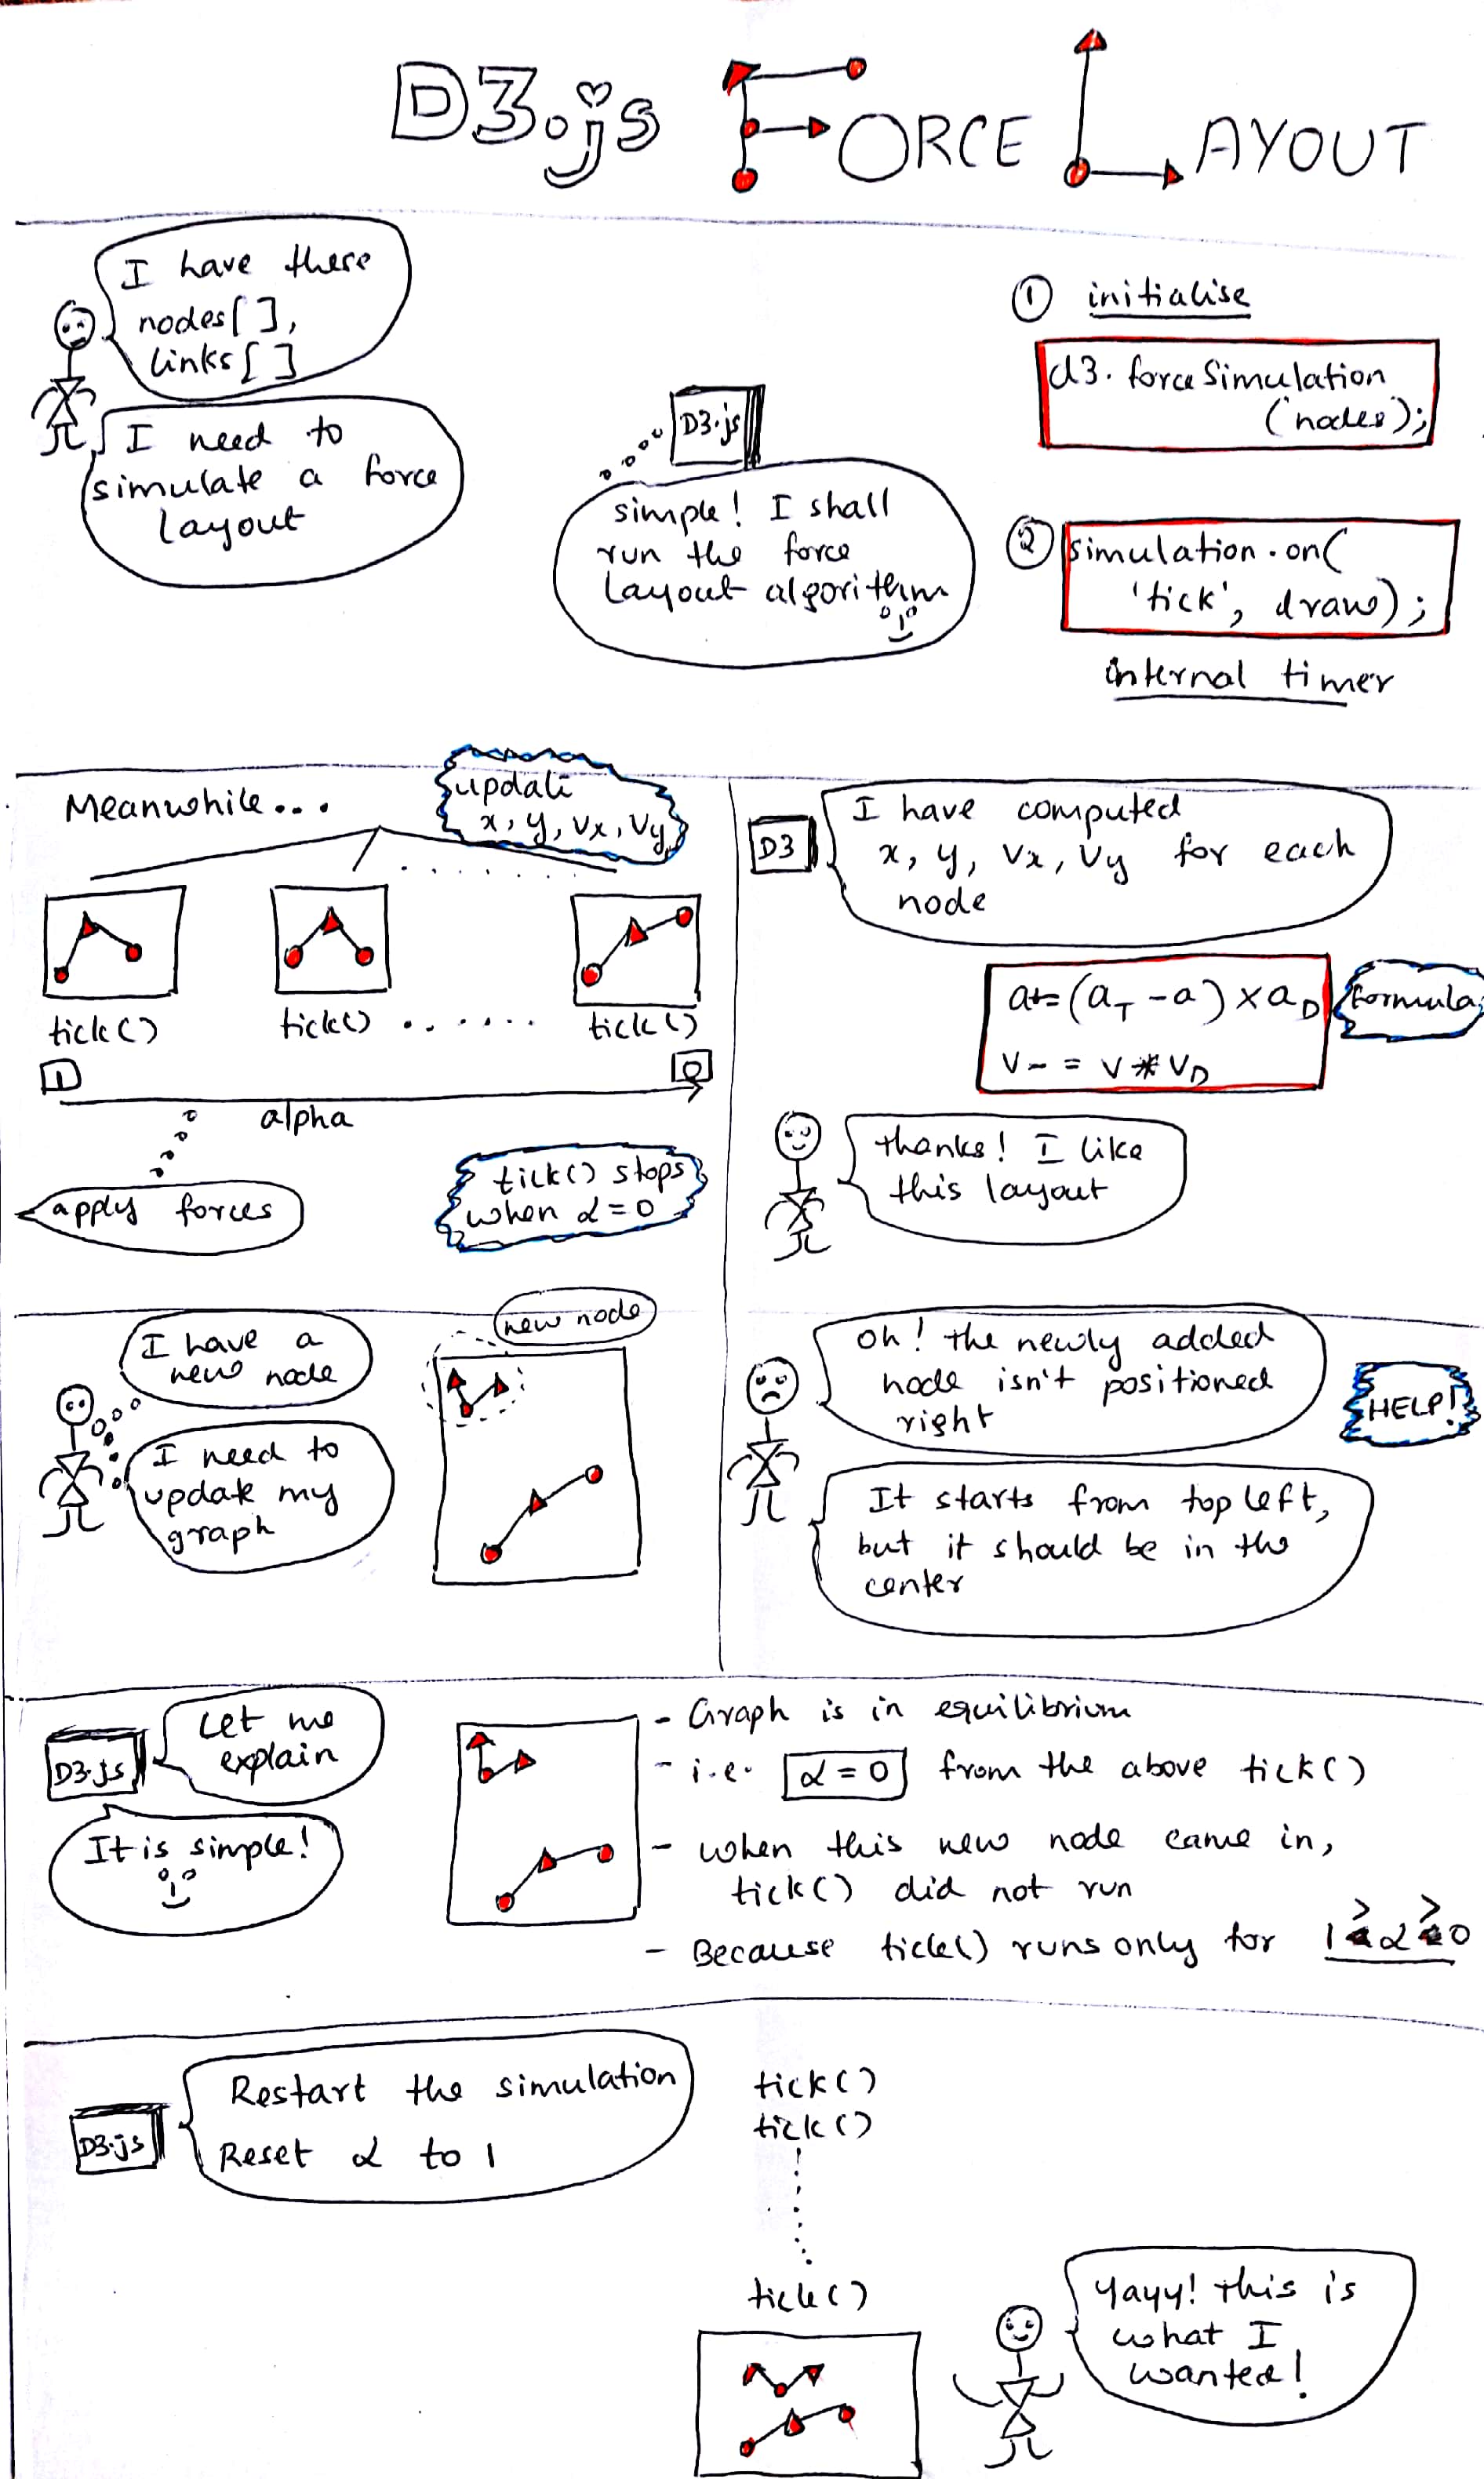 D3.js FORCE LAYOUT
I have these
nodes[],
links[]
I need to
simulate a force
layout
D3.js
simple! I shall
run the force
layout algorithm
① initialise
d3.forceSimulation
(nodes);
② simulation.on(
'tick', draw);
internal timer
Meanwhile...
update
x, y, vx, vy
tick()
tick() .......
tick()
1
0
alpha
apply forces
tick() stops
when α = 0
D3
I have computed
x, y, vx, vy for each
node
a+=(aT - a) × aD
v- = v * vD
Formula
thanks! I like
this layout
I have a
new node
I need to
update my
graph
new node
Oh! the newly added
node isn't positioned
right
HELP!
It starts from top left,
but it should be in the
center
D3.js
Let me
explain
It is simple!
- Graph is in equilibrium
- i.e. α = 0 from the above tick()
- when this new node came in,
tick() did not run
- Because tick() runs only for 1 > α > 0
D3.js
Restart the simulation
Reset α to 1
tick()
tick()
tick()
Yayy! this is
what I
wanted!